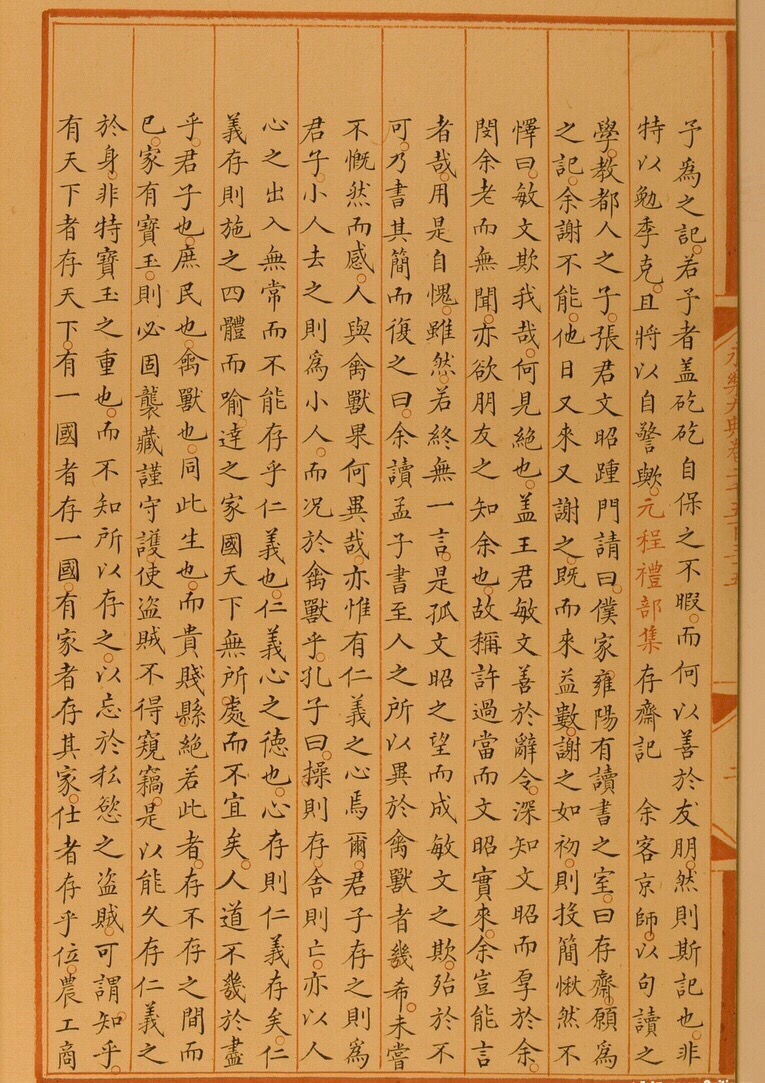 予為之記。若子者盖矻矻自保之不暇。而何以善於友朋。然則斯記也。非
特以勉季克。且將以自警歟。元程禮部集 存齋記 余客京師。以句讀之
學。教都人之子。張君文昭踵門請曰。僕家雍陽有讀書之室。曰存齋。願為
之記。余謝不能。他日又來又謝之。既而來益數。謝之如初。則投簡愀然不
懌曰。敏文欺我哉。何見絕也。盖王君敏文善於辭令。深知文昭而厚於余。
閔余老而無聞。亦欲朋友之知余也。故稱許過當而文昭實來。余豈能言
者哉。用是自愧。雖然。若終無一言。是孤文昭之望而成敏文之欺。殆於不
可。乃書其簡而復之曰。余讀孟子書至人之所以異於禽獸者幾希。未嘗
不慨然而感。人與禽獸果何異哉。亦惟有仁義之心焉爾。君子存之則為
君子。小人去之則為小人。而況於禽獸乎。孔子曰。操則存。舍則亡。亦以人
心之出入無常而不能存乎仁義也。仁義心之德也。心存則仁義存矣。仁
義存則施之四體而喻。達之家國天下無所處而不宜矣。人道不幾於盡
乎。君子也。庶民也。禽獸也。同此生也。而貴賤縣絕若此者。存不存之間而
已。家有寶玉。則必固襲藏謹守護。使盜賊不得窺竊。是以能久存仁義之
於身。非特寶玉之重也。而不知所以存之。以忘於私慾之盜賊。可謂知乎。
有天下者存天下。有一國者存一國。有家者存其家。仕者存乎位。農工商